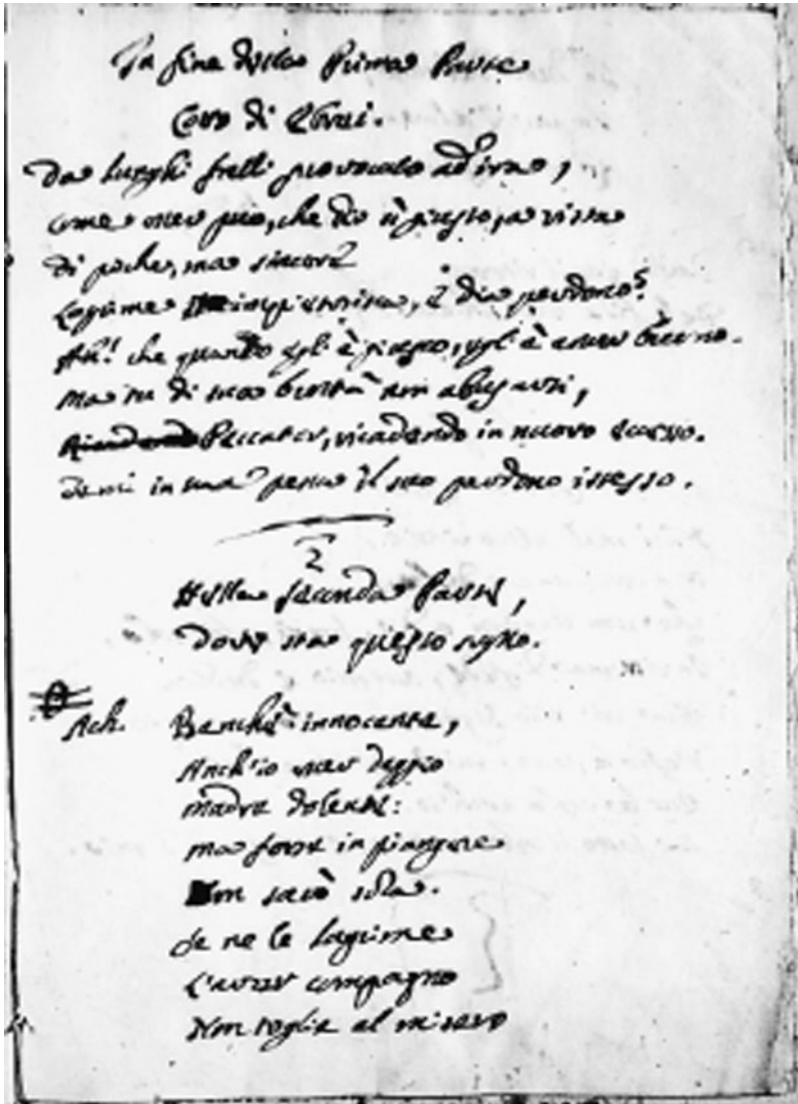 In fine della Prima Parte
Coro di Ebrei.
Da lunghi falli provocato ad ira,
come mai può, che Dio sì giusto, a vista
di poche, ma sincere
Lagrime impietosisca, e dia perdono?
Ah! che quanto egli è giusto, egli è ancor buono.
Ma tu di sua bontà non abusarti,
Peccator, ricadendo in nuovo eccesso.
in tua pena il suo perdono istesso.
2
Nella seconda Parte,
dove sta questo segno.
Ach. Benchè innocente,
Anch'io
madre dolente:
ma forse in piangere
Non sarò sola.
Se ne le lagrime
L'aver compagno
Non toglie al misero